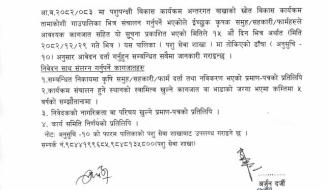 आ.व.२०८२/०८३ मा पशुपन्छी विकास कार्यक्रम अन्तरगत बाख्राको स्रोत विकास कार्यक्रम
तामाकोशी गाउपालिका भित्र संचालन गर्नुपर्ने भएकोले ईच्छुक कृषक समूह/सहकारी/फार्महरुले
आवश्यक कागजात सहित यो सूचना प्रकाशित भएको मितिले १५ औं दिन भित्र अर्थात (मिति
२०८२/१२/२९ गते भित्र । यस पालिका । पशु सेवा शाखा । मा तोकिएको ढाँचा (अनुसूचि -
१०) अनुसार आवेदन दर्ता गर्नुहुन सम्बन्धित सबैमा जानकारी गराइन्छ ।
निवेदन साथ संलग्न गर्नुपर्ने कागजातहरु
१.सम्बन्धित निकायमा कृषि समूह/सहकारी/फार्म दर्ता तथा नविकरण भएको प्रमाण-पत्रको प्रतिलिपि ।
२.कार्यक्रम संचालन हुने स्थानको स्वामित्व खुल्ने कागजात वा भाडाको जग्गा भएमा कम्तिमा ५
वर्षको सम्झौतानामा ।
३. निवेदकको नागरिकता वा परिचय खुल्ने प्रमाण-पत्रको प्रतिलिपि ।
४. कार्य समिति निर्णयको प्रतिलिपि ।
नोट: अनुसूचि -१० को फारम पालिकाको पशु सेवा शाखाबाट उपलब्ध गराइने छ ।
सम्पर्क नं.९८४४११९६८५,९८४८१३५८००(पशु सेवा शाखा)
अर्जुन दर्जी